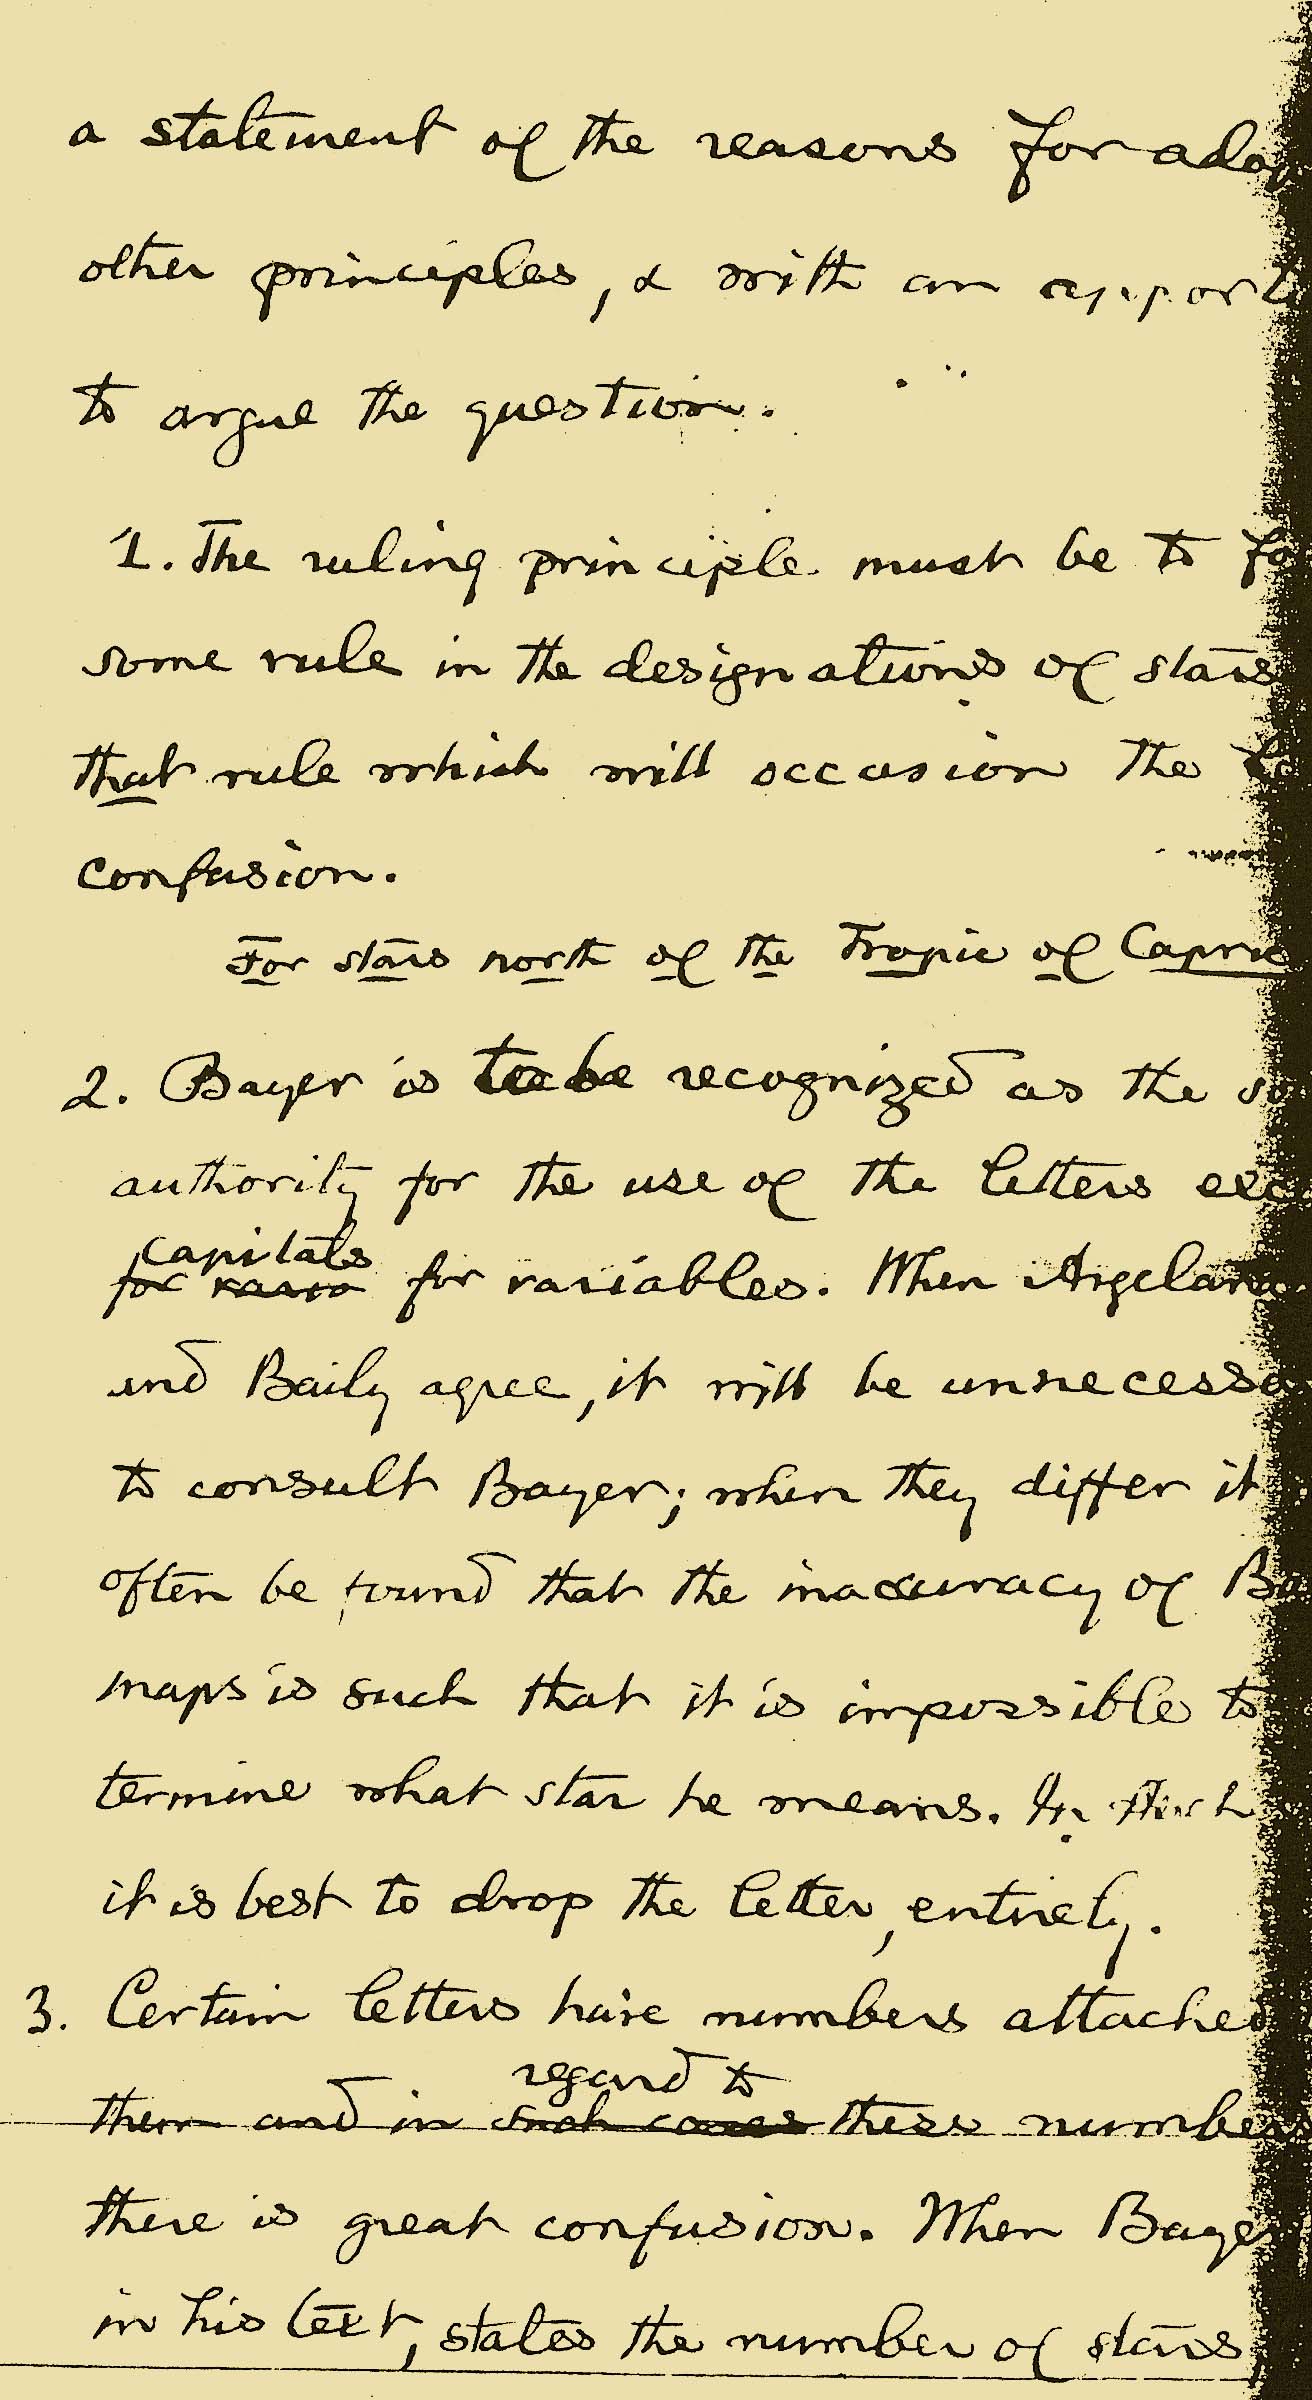 a statement of the reasons for adop
other principles, & with an opport
to argue the question.
1. The ruling principle must be to fo
some rule in the designations of stars
that rule which will occasion the
confusion.
For stars north of the Tropic of Capric
2. Bayer is to be recognized as the so
authority for the use of the letters exc
capitals
for vario for variables. When Argeland
and Baily agree, it will be unnecessa
to consult Bayer; when they differ it
often be found that the inaccuracy of Ba
maps is such that it is impossible to
termine what star he means. In
it is best to drop the letter, entirely.
3. Certain letters have numbers attached
regard to
them and in such cases these numbers
there is great confusion. When Bayer
in his text, states the number of stars,